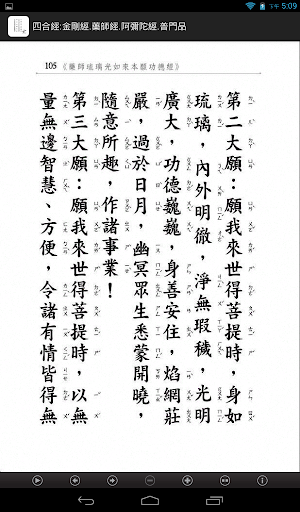 下午 5:09
四合經:金剛經.藥師經.阿彌陀經.普門品
105 《藥師琉璃光如來本願功德經》
第二大願：願我來世得菩提時，身如
琉璃，內外明徹，淨無瑕穢，光明
廣大，功德巍巍，身善安住，焰網莊
嚴，過於日月，幽冥眾生悉蒙開曉，
隨意所趣，作諸事業！
第三大願：願我來世得菩提時，以無
量無邊智慧、方便，令諸有情皆得無